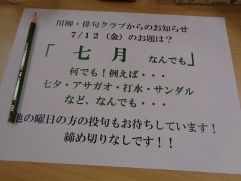 川柳・俳句クラブからのお知らせ
7/12(金)のお題は?
「七月 なんでも」
何でも!例えば・・・
七夕・アサガオ・打水・サンダル
など、なんでも・・・
他の曜日の方の投句もお待ちしています!
締め切りなしです!!